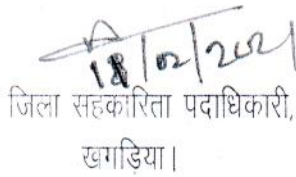 18/02/2021
जिला सहकारिता पदाधिकारी,
खगड़िया।